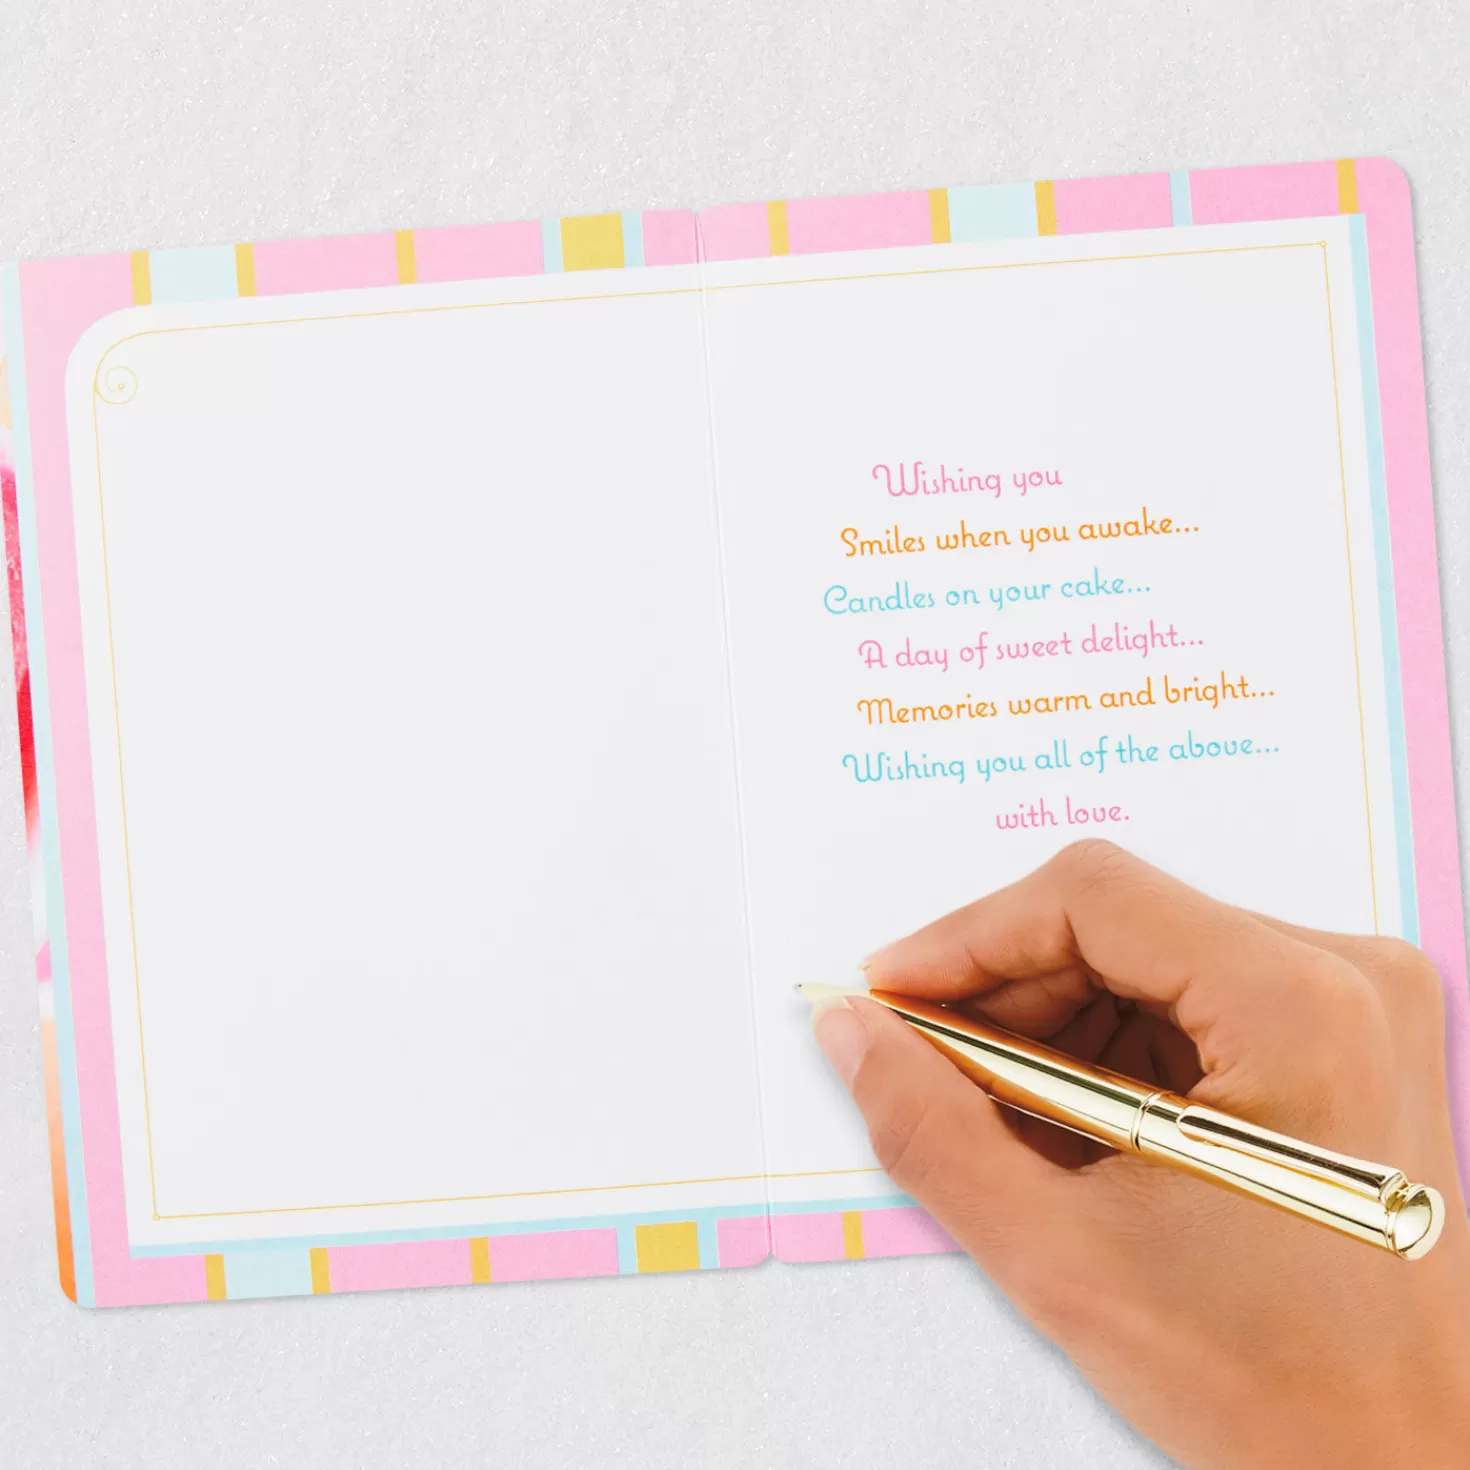 Wishing you
Smiles when you awake...
Candles on your cake...
A day of sweet delight...
Memories warm and bright...
Wishing you all of the above...
with love.